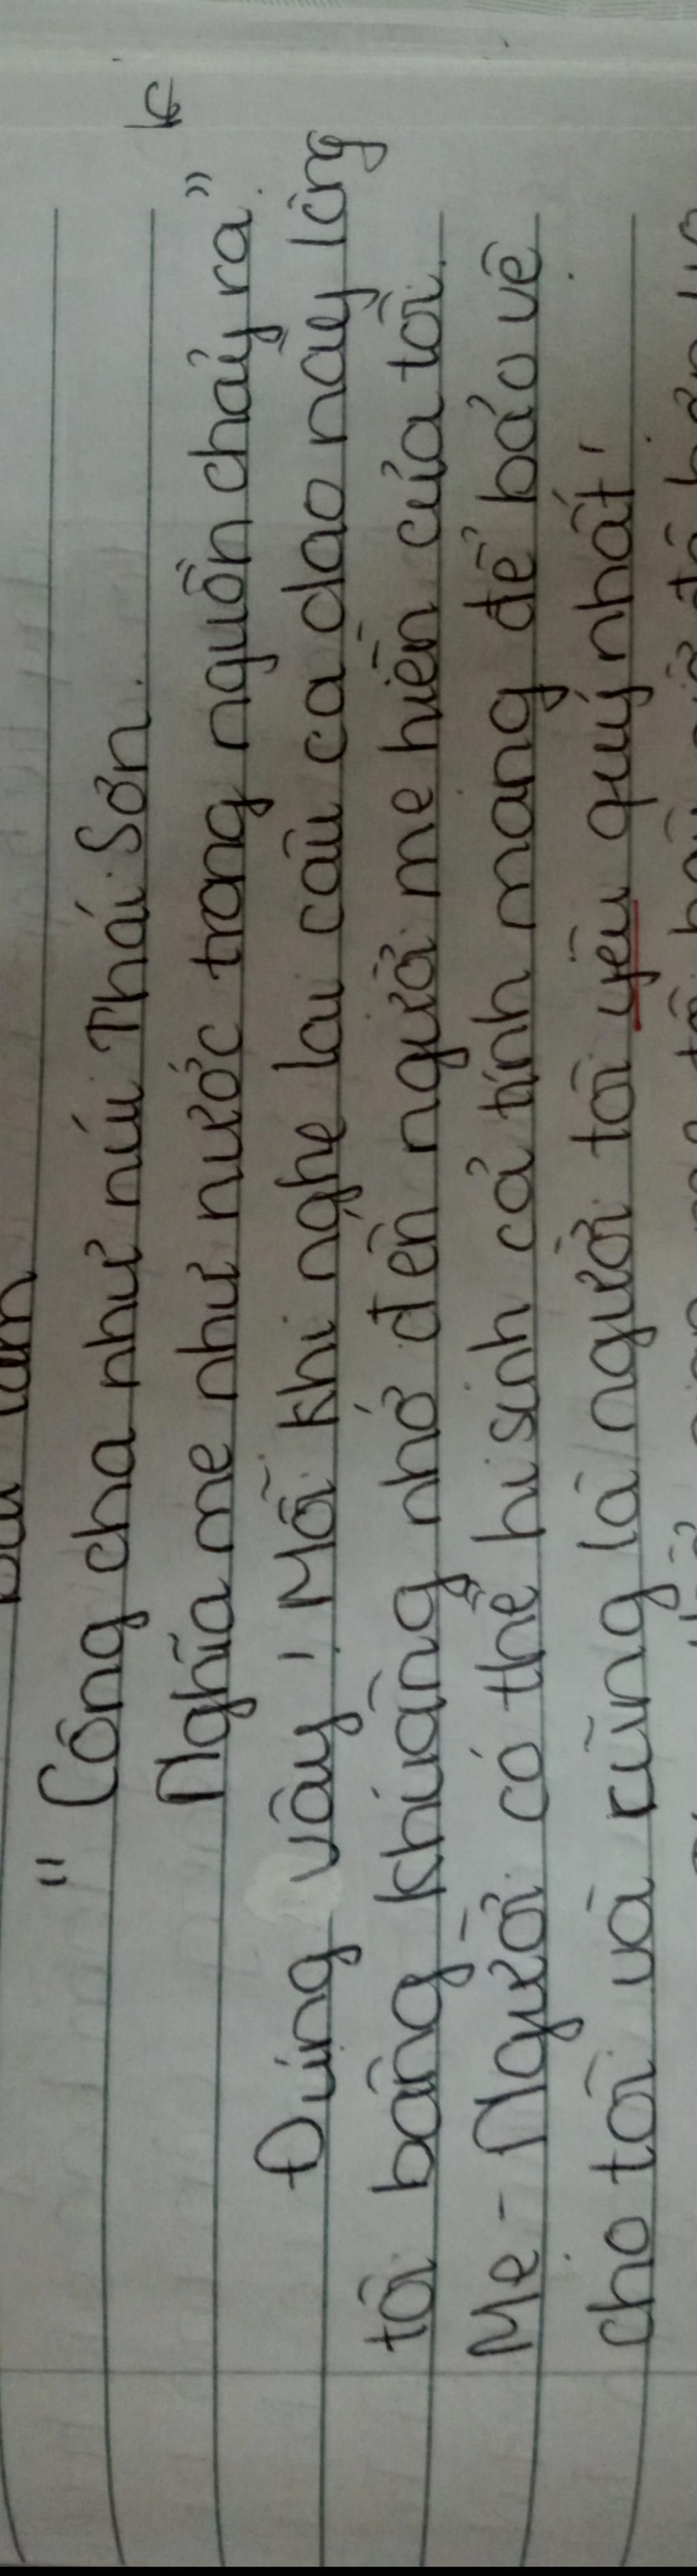 Bài làm
"Công cha như núi Thái Sơn.
Nghĩa mẹ như nước trong nguồn chảy ra"
Đúng vậy! Mỗi khi nghe lại câu ca dao này lòng
tôi bâng khuâng nhớ đến người mẹ hiền của tôi.
Mẹ - Người có thể hi sinh cả tính mạng để bảo vệ
cho tôi và cũng là người tôi yêu quý nhất!